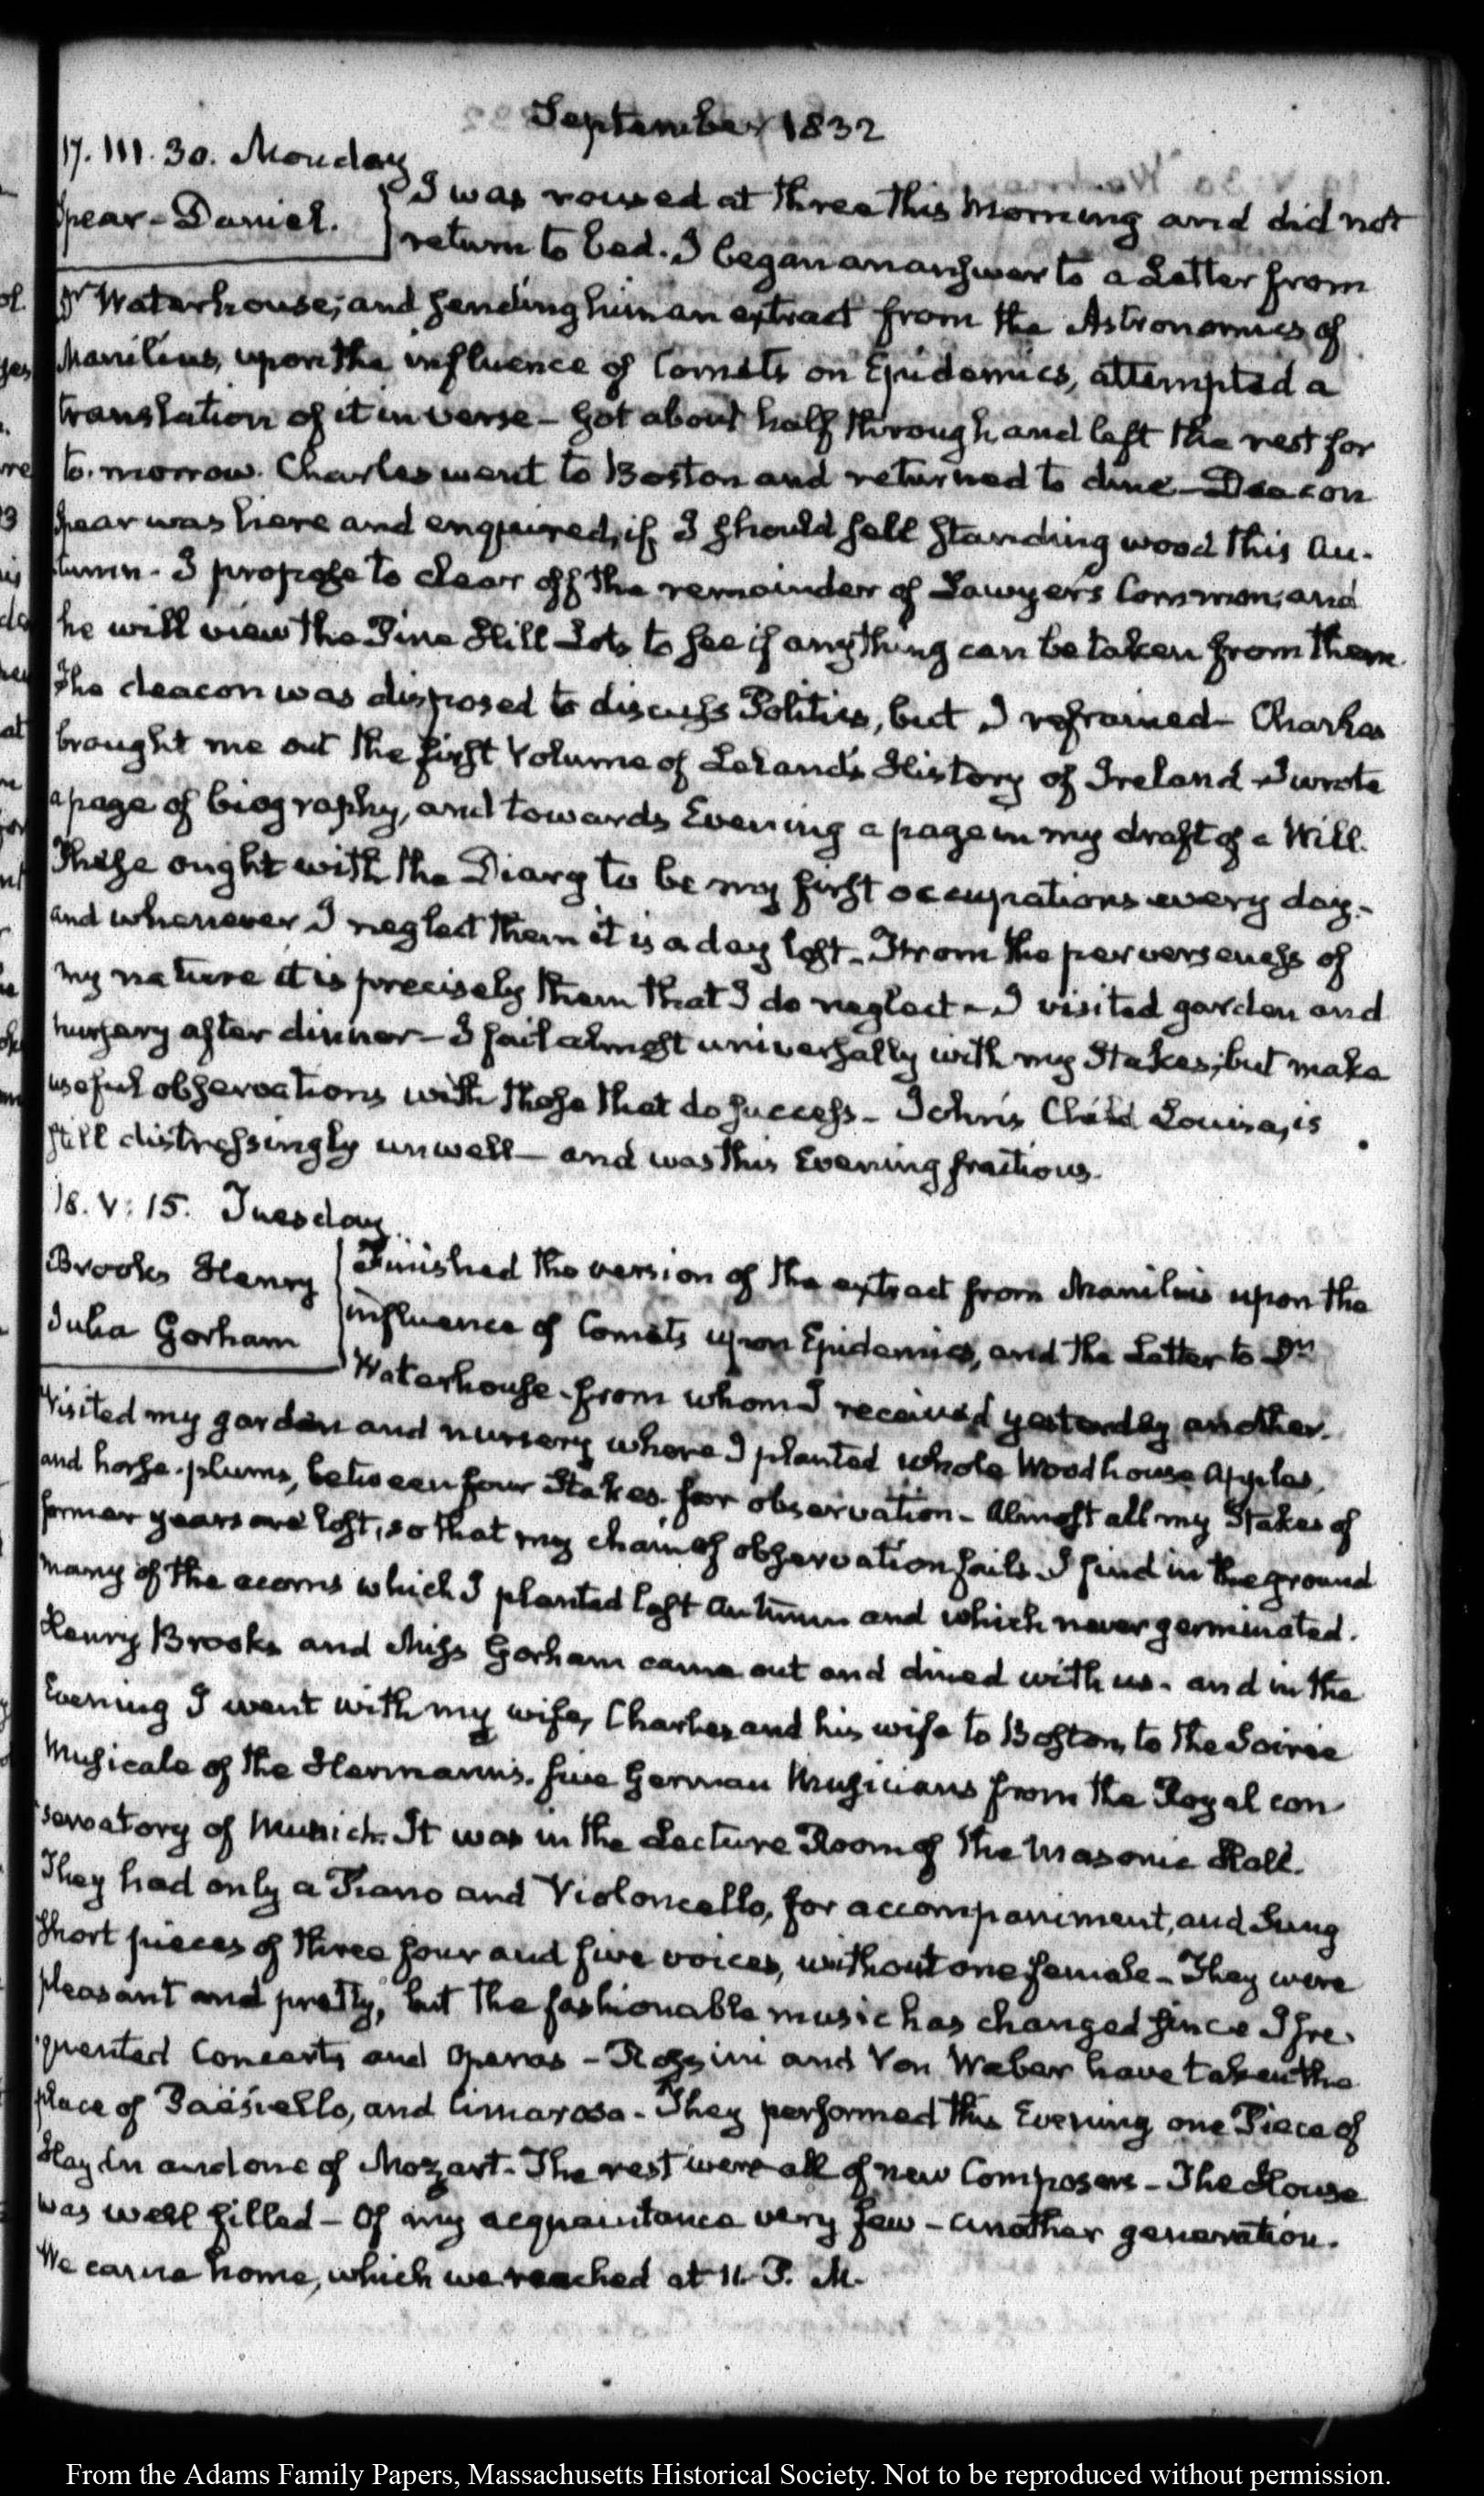 September 1832
17. III. 30. Monday
Spear - Daniel.
I was roused at three this Morning and did not
return to bed. I began an answer to a Letter from
Dr Waterhouse; and sending him an extract from the Astronomics of
Manilius, upon the influence of Comets on Epidemics, attempted a
translation of it in verse - Got about half through and left the rest for
to-morrow. Charles went to Boston and returned to dine - Deacon
Spear was here and enquired, if I should sell standing wood this Au-
tumn - I propose to clear off the remainder of Lawyer's Common; and
he will view the Pine Hill Lots to see if any thing can be taken from them
The deacon was disposed to discuss Politics, but I refrained - Charles
brought me out the first Volume of Leland's History of Ireland - I wrote
a page of biography, and towards Evening a page in my draft of a Will.
These ought with the Diary to be my first occupations every day -
and whenever I neglect them it is a day lost - From the perverseness of
my nature it is precisely them that I do neglect - I visited garden and
nursery after dinner - I fail almost universally with my Stakes; but make
useful observations with those that do success - John's Child Louisa, is
still distressingly unwell - and was this Evening fractious.
18. V: 15. Tuesday
Brooks Henry
Julia Gorham
Finished the version of the extract from Manilius upon the
influence of Comets upon Epidemics, and the Letter to Dr
Waterhouse - from whom I received yesterday another.
Visited my garden and nursery where I planted whole Woodhouse Apples,
and horse-plums, between four Stakes for observation - Almost all my Stakes of
former years are lost, so that my chain of observation fails - I find in the ground
many of the acorns which I planted last Autumn and which never germinated.
Henry Brooks and Miss Gorham came out and dined with us - and in the
Evening I went with my wife, Charles and his wife to Boston, to the Soirée
Musicale of the Hermanns. five German Musicians from the Royal con-
servatory of Munich. It was in the Lecture Room of the Masonic Hall.
They had only a Piano and Violoncello, for accompaniment, and Sung
Short pieces of three four and five voices, without one female - They were
pleasant and pretty, but the fashionable music has changed since I fre-
quented Concerts and Operas - Rossini and Von Weber have taken the
place of Paësiello, and Cimarosa - They performed this Evening one Piece of
Haydn and one of Mozart - The rest were all of new Composers - The House
was well filled - Of my acquaintance very few - another generation.
We came home, which we reached at 11. P. M.
From the Adams Family Papers, Massachusetts Historical Society. Not to be reproduced without permission.